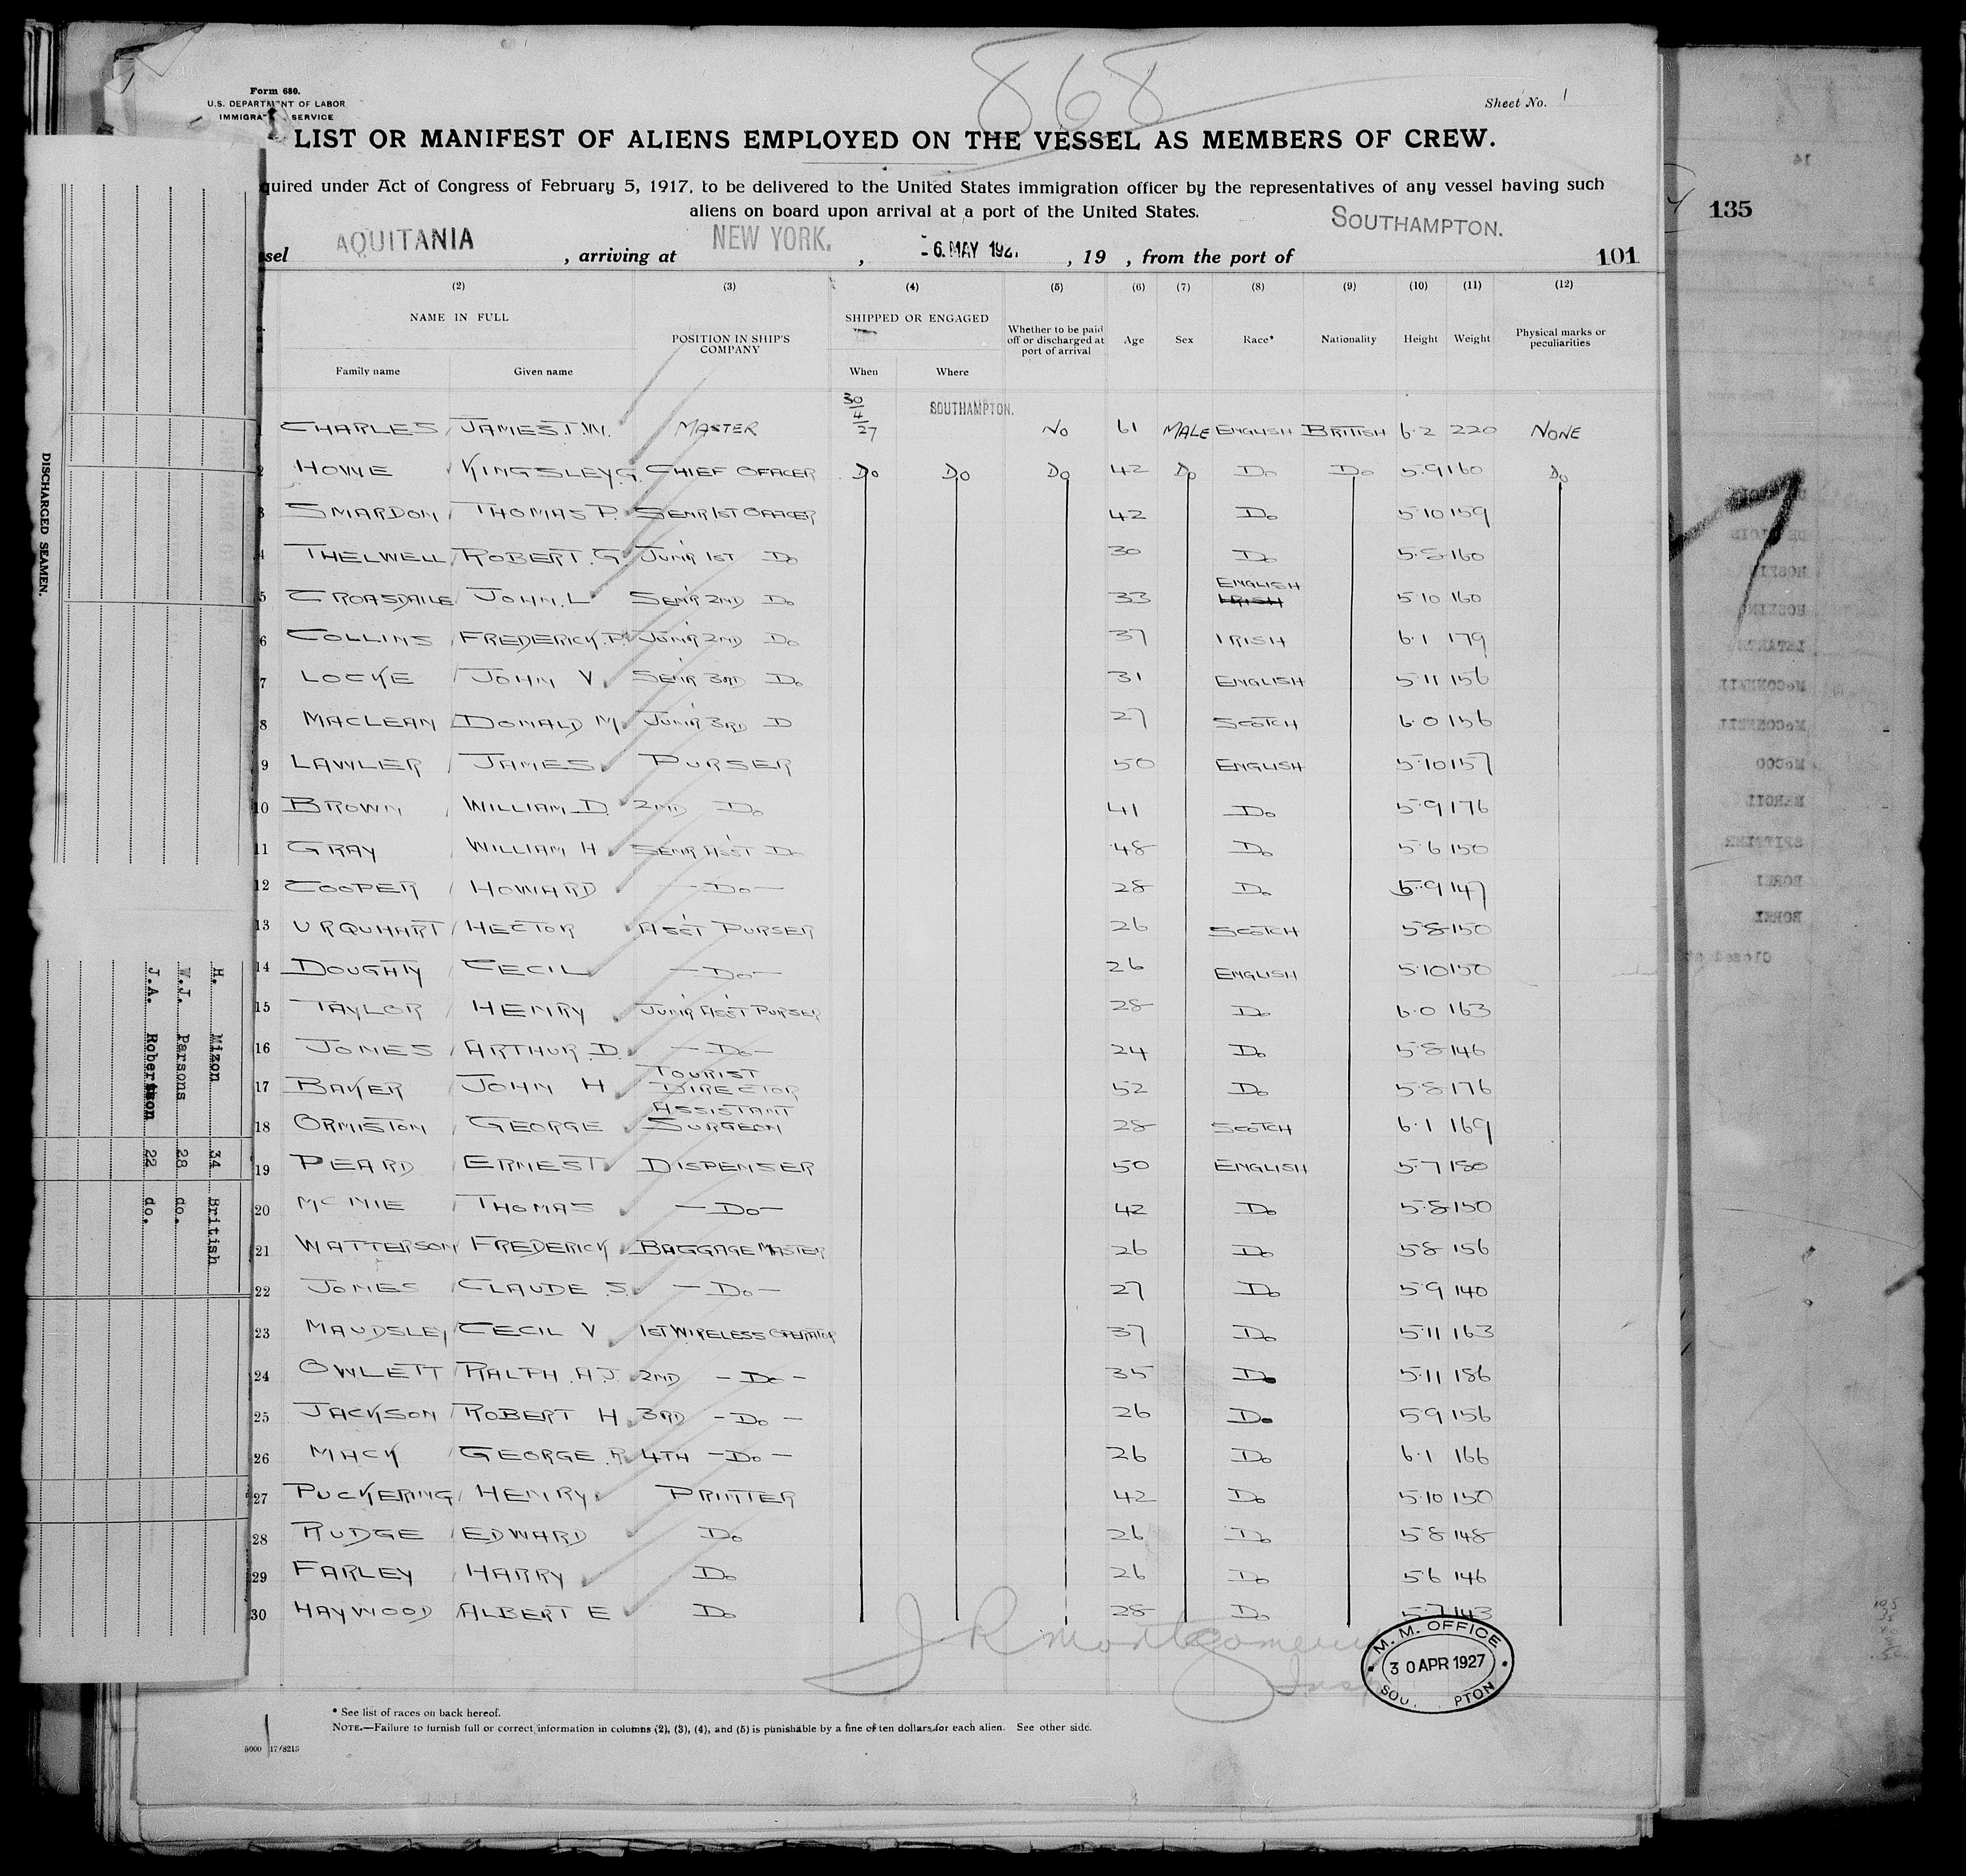 868
Form 680.
U.S. DEPARTMENT OF LABOR
IMMIGRAT SERVICE
Sheet No. 1
LIST OR MANIFEST OF ALIENS EMPLOYED ON THE VESSEL AS MEMBERS OF CREW.
quired under Act of Congress of February 5, 1917, to be delivered to the United States immigration officer by the representatives of any vessel having such
aliens on board upon arrival at a port of the United States.
sel AQUITANIA , arriving at NEW YORK. , - 6. MAY 192 , 19 , from the port of SOUTHAMPTON.
101
135
(2) (3) (4) (5) (6) (7) (8) (9) (10) (11) (12)
NAME IN FULL POSITION IN SHIP'S COMPANY SHIPPED OR ENGAGED Whether to be paid off or discharged at port of arrival Age Sex Race* Nationality Height Weight Physical marks or peculiarities
Family name Given name When Where
1 CHARLES JAMES T.W. MASTER 30/4/27 SOUTHAMPTON. No 61 MALE ENGLISH BRITISH 6·2 220 NONE
2 HOWE KINGSLEY G. CHIEF OFFICER Do Do Do 42 Do Do Do 5·9 160 Do
3 SMARDON THOMAS P. SENR 1ST OFFICER 42 Do 5·10 159
4 THELWELL ROBERT. G. JUNR 1ST Do 30 Do 5·8 160
5 CROASDAILE JOHN. L SENR 2ND Do 33 ENGLISH IRISH 5·10 160
6 COLLINS FREDERICK. P. JUNR 2ND Do 37 IRISH 6·1 179
7 LOCKE JOHN V. SENR 3RD Do 31 ENGLISH 5·11 156
8 MACLEAN DONALD M. JUNR 3RD D 27 SCOTCH 6·0 156
9 LAWLER JAMES. PURSER 50 ENGLISH 5·10 157
10 BROWN WILLIAM D. 2ND Do 41 Do 5·9 176
11 GRAY WILLIAM H. SENR ASST Do 48 Do 5·6 150
12 COOPER HOWARD — Do — 28 Do 5·9 147
13 URQUHART HECTOR ASST PURSER 26 SCOTCH 5·8 150
14 DOUGHTY CECIL — Do — 26 ENGLISH 5·10 150
15 TAYLOR HENRY JUNR ASST PURSER 28 Do 6·0 163
16 JONES ARTHUR. D. — Do — 24 Do 5·8 146
17 BAKER JOHN H TOURIST DIRECTOR 52 Do 5·8 176
18 ORMISTON GEORGE ASSISTANT SURGEON 28 SCOTCH 6·1 169
19 PEARD ERNEST DISPENSER 50 ENGLISH 5·7 180
20 MCNIE THOMAS — Do — 42 Do 5·8 150
21 WATTERSON FREDERICK BAGGAGE MASTER 26 Do 5·8 156
22 JONES CLAUDE S. — Do — 27 Do 5·9 140
23 MAUDSLEY CECIL V 1ST WIRELESS OPERATOR 37 Do 5·11 163
24 OWLETT RALPH. A.J. 2ND — Do — 35 Do 5·11 186
25 JACKSON ROBERT H. 3RD — Do — 26 Do 5·9 156
26 MACK GEORGE. R. 4TH — Do — 26 Do 6·1 166
27 PUCKERING HENRY. PRINTER 42 Do 5·10 150
28 RUDGE EDWARD Do 26 Do 5·8 148
29 FARLEY HARRY Do 26 Do 5·6 146
30 HAYWOOD ALBERT E Do 28 Do 5·7 143
J R Montgomery
Insp
M. M. OFFICE
30 APR 1927
SOU PTON
* See list of races on back hereof.
NOTE.—Failure to furnish full or correct information in columns (2), (3), (4), and (5) is punishable by a fine of ten dollars for each alien. See other side.
5000 17/8213
DISCHARGED SEAMEN.
H. Mizon 34 British
W.J. Parsons 28 do.
J.A. Robertson 22 do.